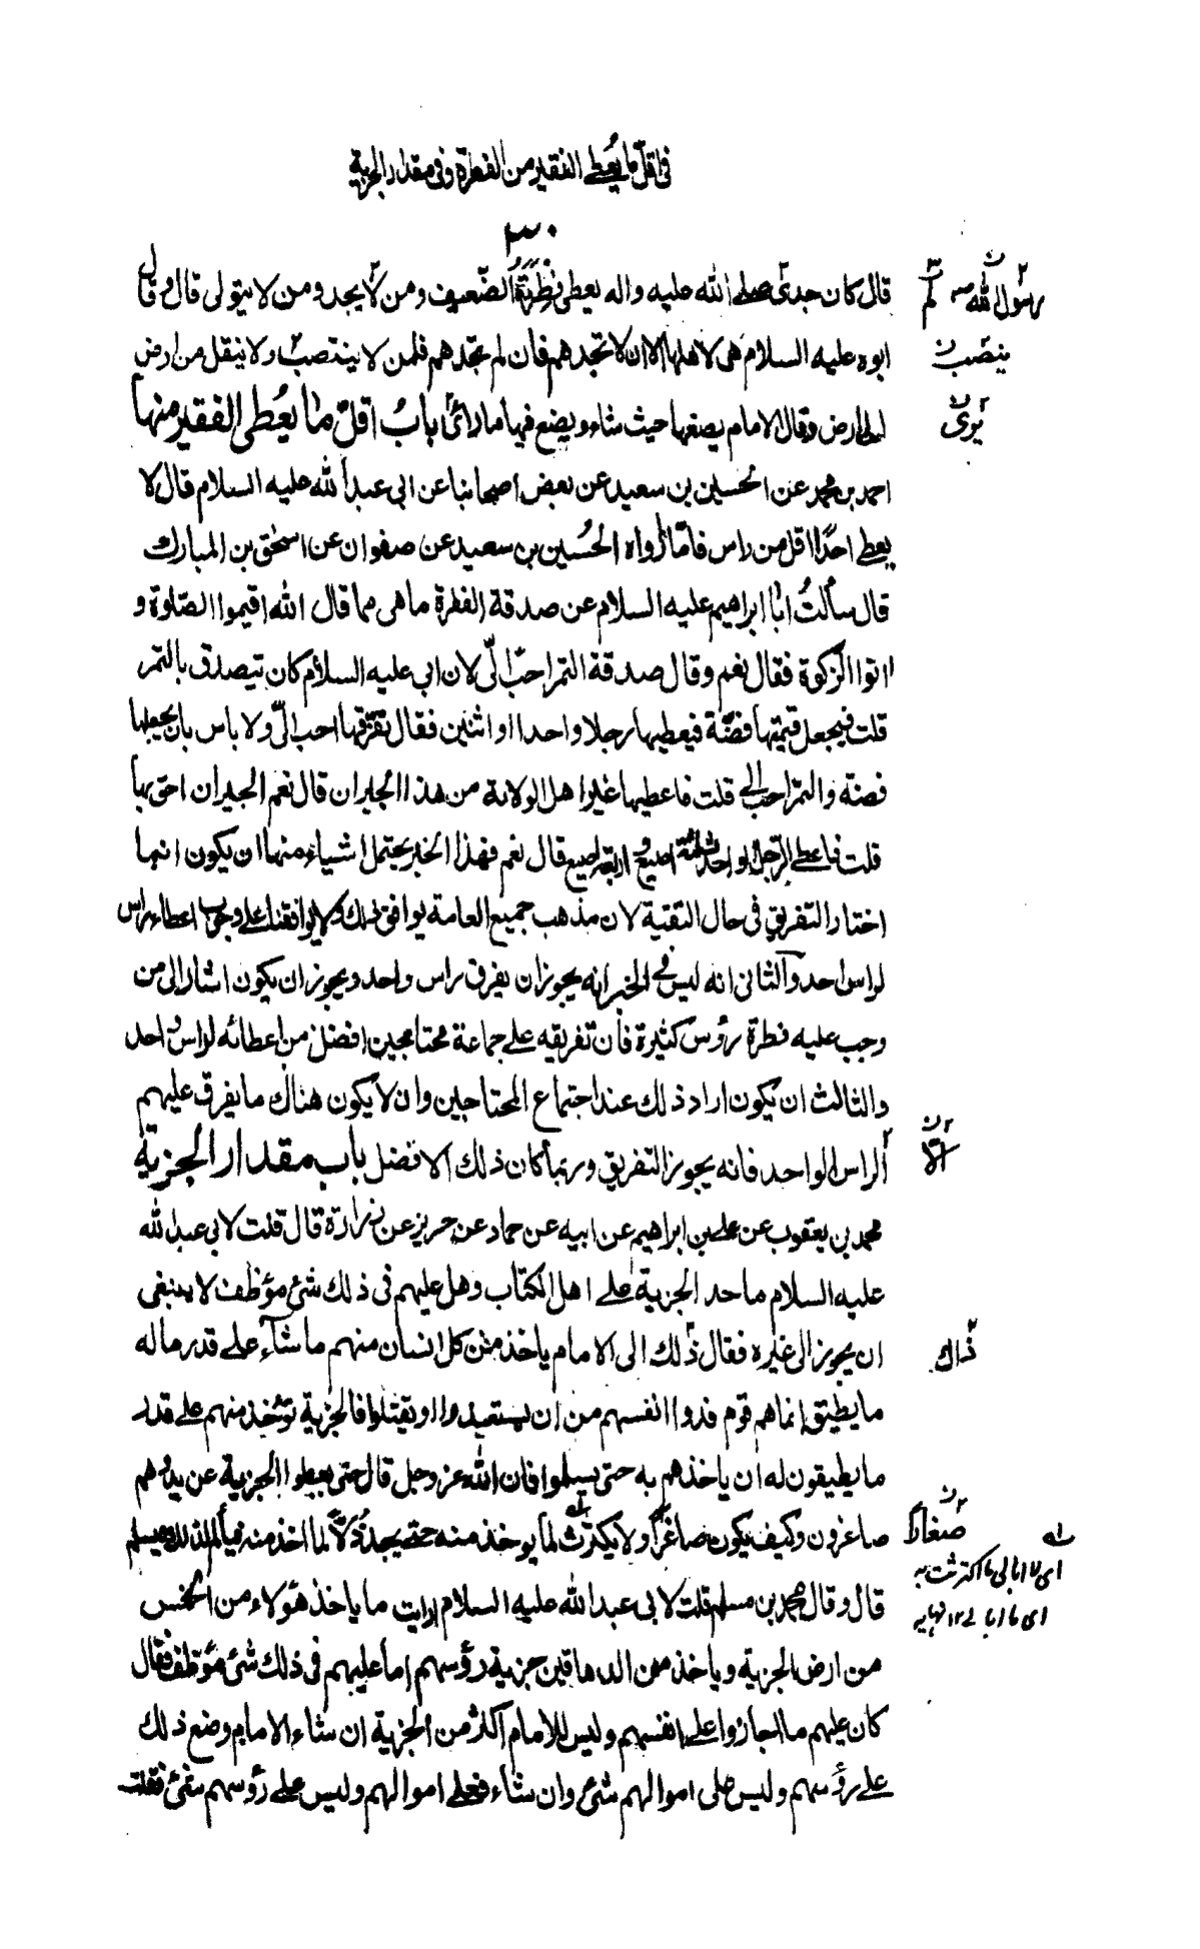 فی اقل ما یُعطی الفقیر من الفطرة وفی مقدار الجزیة
۳۰
قال كان جدّی صلی الله علیه واله یعطی فِطرَتَهُ الضّعیف ومن لّا یجد ومن لا یتولی قال وقال
ابوه علیه السلام هی لاهلها الا ان لا تجدهم فان لم تجدهم فلمن لا ینتصب ولا ینقل من ارض
الی ارض وقال الامام یضعها حیث شاء ویضع فیها ما رائ بابُ اقلّ ما یُعطی الفقیر منها
احمد بن محمد عن الحسین بن سعید عن بعض اصحابنا عن ابی عبد الله علیه السلام قال لا
یعطی احدًا اقل من راس فامّا ما رواه الحُسین بن سعید عن صفوان عن اسحٰق بن المبارك
قال سألتُ ابا ابراهیم علیه السلام عن صدقة الفطرة ما هی مما قال الله اقیموا الصّلوة و
اتوا الزكوة فقال نعم وقال صدقة التمر احبّ الیّ لان ابی علیه السلام كان یتصدق بالتمر
قلت فیجعل قیمتها فضّة فیعطیها رجلا واحدا او اثنین فقال تفرّقها احب الیّ ولا باس بان یجعلها
فضة والتمر احب الی قلت فاعطیها غیر اهل الولایة من هذا الجیران قال نعم الجیران احق بها
قلت فاعطی الرّجل الواحد ثلثة اصیع و اربعة اصیع قال نعم فهذا الخبر یحتمل اشیاء منها ان یكون انما
اختار التفریق فی حال التقیة لان مذهب جمیع العامة یوافق ذلك ولا یوافقنا علی وجوب اعطاء راس
لراس واحد والثانی انه لیس فی الخبر انه یجوز ان یفرق راس واحد ویجوز ان یكون اشار الی من
وجب علیه فطرة رؤس كثیرة فان تفریقه علی جماعة محتاجین افضل من اعطائه لراس واحد
والثالث ان یكون اراد ذلك عند اجتماع المحتاجین وان لا یكون هناك ما یفرق علیهم
الراس الواحد فانه یجوز التفریق وربما كان ذلك الافضل باب مقدار الجزیة
محمد بن یعقوب عن علی بن ابراهیم عن ابیه عن حماد عن حریز عن زرارة قال قلت لابی عبد الله
علیه السلام ما حد الجزیة علی اهل الكتاب وهل علیهم فی ذلك شئ مؤظف لا ینبغی
ان یجوز الی غیره فقال ذلك الی الامام یاخذ من كل انسان منهم ما شاء علی قدر ماله
ما یطیق انما هم قوم فدوا انفسهم من ان یستعبدوا او یقتلوا فالجزیة توخذ منهم علی قدر
ما یطیقون له ان یاخذهم به حتی یسلموا فان الله عز وجل قال حتی یعطوا الجزیة عن ید وهم
صاغرون وكیف یكون صاغرًا ولا یكترث لما یوخذ منه حتی یجد ذُلّاً لما اخذ منه فیألم لذلك فیسلم
قال وقال محمد بن مسلم قلت لابی عبد الله علیه السلام ارایت ما یاخذ هؤلاء من الخمس
من ارض الجزیة ویاخذ من الدهاقین جزیة رؤسهم اما علیهم فی ذلك شئ مؤظف فقال
كان علیهم ما اجازوا علی انفسهم ولیس للامام اكثر من الجزیة ان شاء الامام وضع ذلك
علی رؤسهم ولیس علی اموالهم شئ وان شاء فعلی اموالهم ولیس علی رؤسهم شئ فقلت
رسول الله
ینصب
یری
الا
ذاك
صغارا
ای لا ابالی ما اكترثت به
ای ما ابالی ۱۲ نهایه